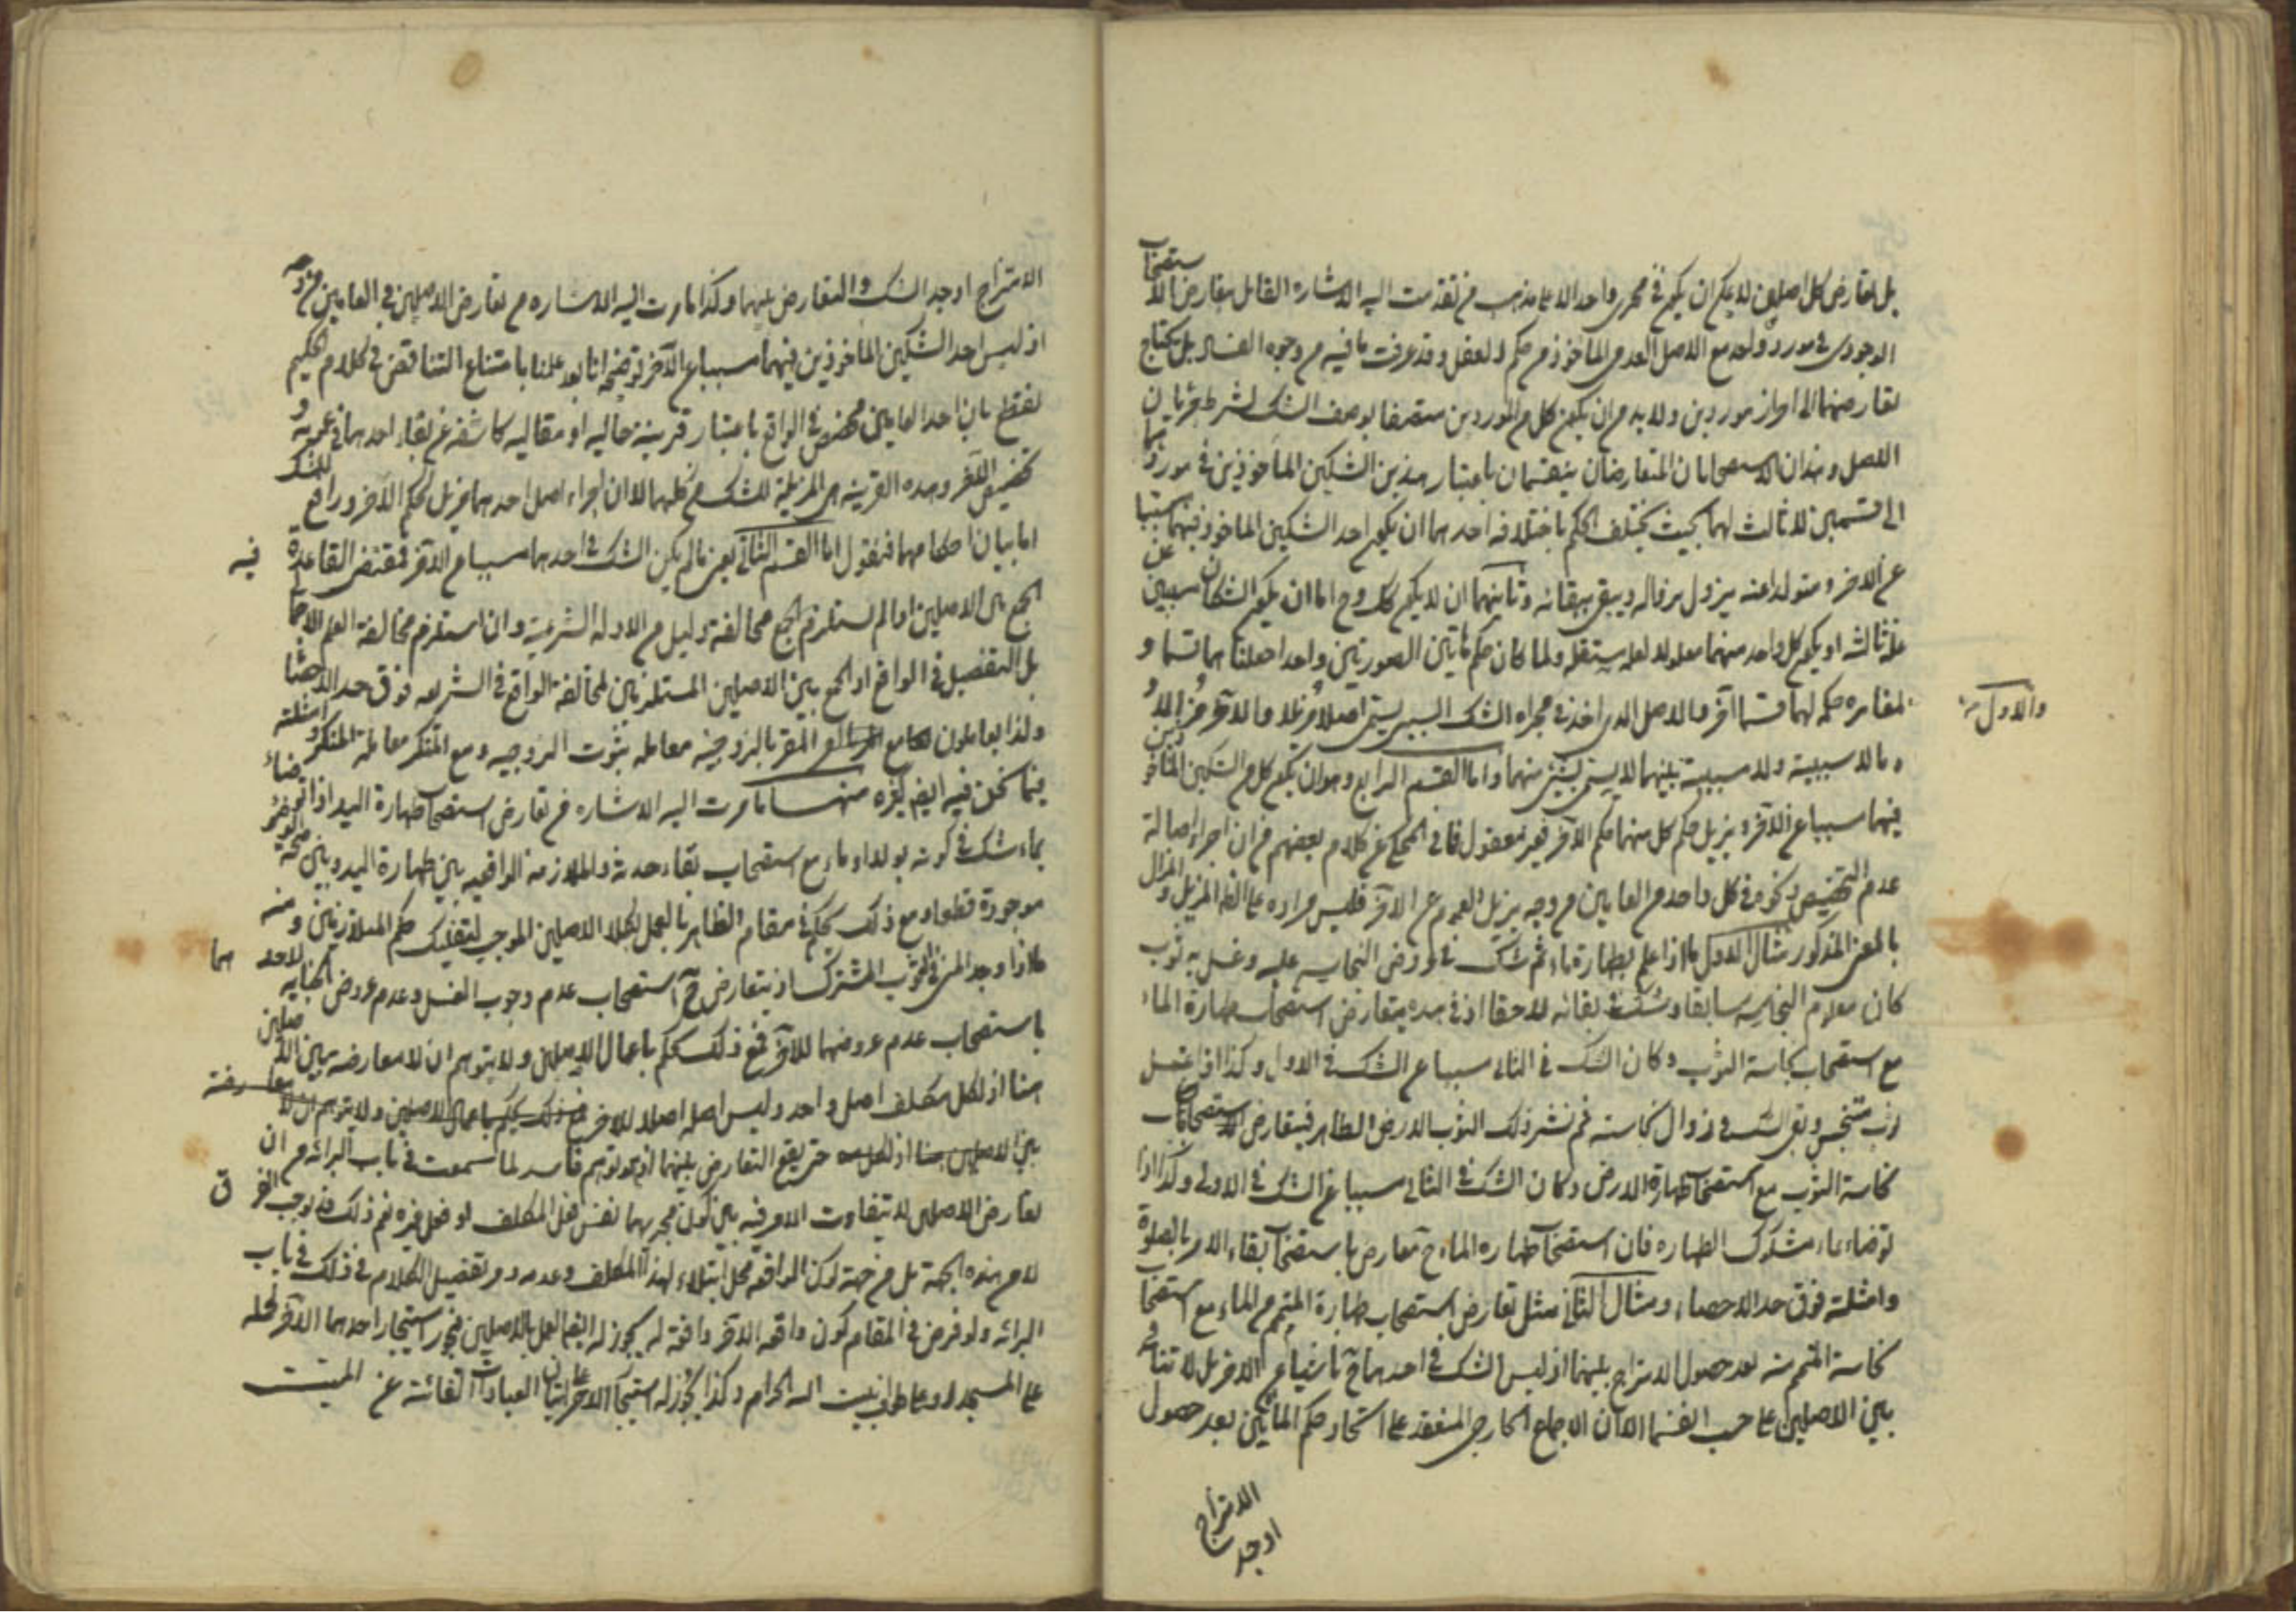 بل تعارض كل اصلين لا يمكن ان يكون في مجرى واحد الا على مذهب من تقدمت اليه الاشاره القائل بتعارض الاستصحاب
الوجودى في مورد واحد مع الاصل العدمى الماخوذ من حكم العقل وقد عرفت ما فيه من وجوه الفساد بل يحتاج
تعارضهما الى احراز موردين ولا بد من ان يكون كل من الموردين متصفا بوصف الشك لشرط جريان
الاصل وهذان الاستصحابان المتعارضان ينقسمان باعتبار هذين الشكين الماخوذين في موردهما
الى قسمين لا ثالث لهما بحيث يختلف الحكم باختلافه احدهما ان يكون احد الشكين الماخوذ فيهما سببا
عن الاخر ومتولدا عنه يزول بزواله ويبقى ببقائه وثانيهما ان لا يكون كك وح اما ان يكون الشكان سببين عن
علة ثالثه او يكون كل واحد منهما معلولا لعلة مستقله ولما كان حكم هاتين الصورتين واحدا جعلناهما قسما و
لمغايره حكمهما قسما آخر فالاصل الذى اخذ في مجراه الشك السببى يسمى اصلا مزيلا والآخر مزالا
والاول
وما لا سببية ولا مسببية بينهما لا يسمى بشئ منهما واما القسم الرابع وهو ان يكون كل من الشكين الماخوذين
فيهما سببا عن الآخر ويزيل حكم كل منهما حكم الآخر فغير معقول فما في المحكى عن كلام بعضهم من ان اجراء اصالة
عدم التخصيص ونحوه في كل واحد من العامين من وجه يزيل العموم عن الآخر فليس مراده على الظ المزيل والمزال
بالمعنى المذكور مثال الاول ما اذا علم بطهارة ماء ثم شك في عروض النجاسه عليه وغسل به ثوب
كان معلوم النجاسه سابقا وشك في بقائه لاحقا اذ في هذه يتعارض استصحاب طهارة الماء
مع استصحاب نجاسة الثوب وكان الشك في الثانى سببا عن الشك في الاول وكذا اذا غسل
ثوب متنجس وبقى الشك في زوال نجاسته ثم نشر ذلك الثوب الارض الطاهر فيتعارض استصحاب
نجاسة الثوب مع استصحاب طهارة الارض وكان الشك في الثانى سببا عن الشك في الاولى وكذا اذا
توضاء بماء مشكوك الطهاره فان استصحاب طهاره الماء ح تعارض باستصحاب بقاء الامر بالصلوة
وامثلته فوق حد الاحصاء ومثال الثانى مثل تعارض استصحاب طهارة المتمم من الماء مع استصحاب
نجاسة المتمم منه بعد حصول الامتزاج بينهما اذ ليس الشك في احدهما ح ناشيا عن الاخر بل لا تنافى
بين الاصلين على حسب انفسهما الا ان الاجماع الخارجى المنعقد على اتحاد حكم المائين بعد حصول
الامتزاج
اوجد
الامتزاج اوجد الشك والتعارض بينهما وكذا ما مرت اليه الاشاره من تعارض الاصلين في العامين من وجه
اذ ليس احد الشكين الماخوذين فيهما مسببا عن الآخر توضيحه انا بعد علمنا بامتناع التناقض في كلام الحكيم
نقطع بان احد العامين مخصص في الواقع باعتبار قرينة حاليه او مقاليه كاشفه عن بقاء احدهما في عمومه و
تخصيص الآخر وهذه القرينه هى المزيلة للشك من كليهما لا ان اجراء اصل احدهما مزيل لحكم الآخر ورافع للشك
اما بيان احكامهما فنقول اما القسم الثانى يعنى ما لم يكن الشك في احدهما مسببا عن الآخر فمقتضى القاعدة فيه
الجمع بين الاصلين اذا لم يستلزم الجمع مخالفة دليل من الادله الشرعيه وان استلزم مخالفة العلم الاجمالى
بل التفصيل في الواقع اذ الجمع بين الاصلين المستلزمين لمخالفة الواقع في الشريعه فوق حد الاحصاء
ولذا يعاملون مع المقر بالزوجيه معامله بثبوت الزوجيه ومع المنكر معاملة المنكر وامثلته
فيما نحن فيه ايضا كثيره منها ما مرت اليه الاشاره من تعارض استصحاب طهارة اليد اذا توضاء
بماء شك في كونه بولا او ماء مع استصحاب بقاء حدثه والملازمه الواقعيه بين طهارة اليد وبين صحة الوضوء
موجودة قطعا ومع ذلك يحكم في مقام الظاهر بالعمل بكلا الاصلين الموجب لتفكيك حكم المتلازمين ومنه
ما اذا وجد المنى في الثوب المشترك اذ يتعارض ح استصحاب عدم وجوب الغسل وعدم عروض الجنابه لاحدهما
باستصحاب عدم عروضهما للآخر فمع ذلك يحكم باعمال الاصلين ولا يتوهم ان لا معارضه بين الاصلين
هنا اذ لكل مكلف اصل واحد وليس اصله اصلا للاخر فمع ذلك يحكم باعمال الاصلين ولا يتوهم ان لا معارضة
بين الاصلين هنا اذ لكل حتى يقع التعارض بينهما اذ هو توهم فاسد لما سمعت في باب البرائه من ان
تعارض الاصلين لا يتفاوت الامر فيه بين كون مجريهما نفس فعل المكلف او فعل غيره نعم ذلك قد يوجب الفرق
لا من هذه الجهة بل من جهة كون الواقعه محل ابتلاء لهذا المكلف وعدمه وتفصيل الكلام في ذلك في باب
البرائه ولو فرض في المقام كون واقعه الاخر واقعة له يجوز له ايضا العمل بالاصلين فيجوز استيجار احدهما الآخر لحمله
على المسجد او على طواف بيت الله الحرام وكذا يجوز له استيجار الآخر لاتيان العبادات الفائته عن الميت